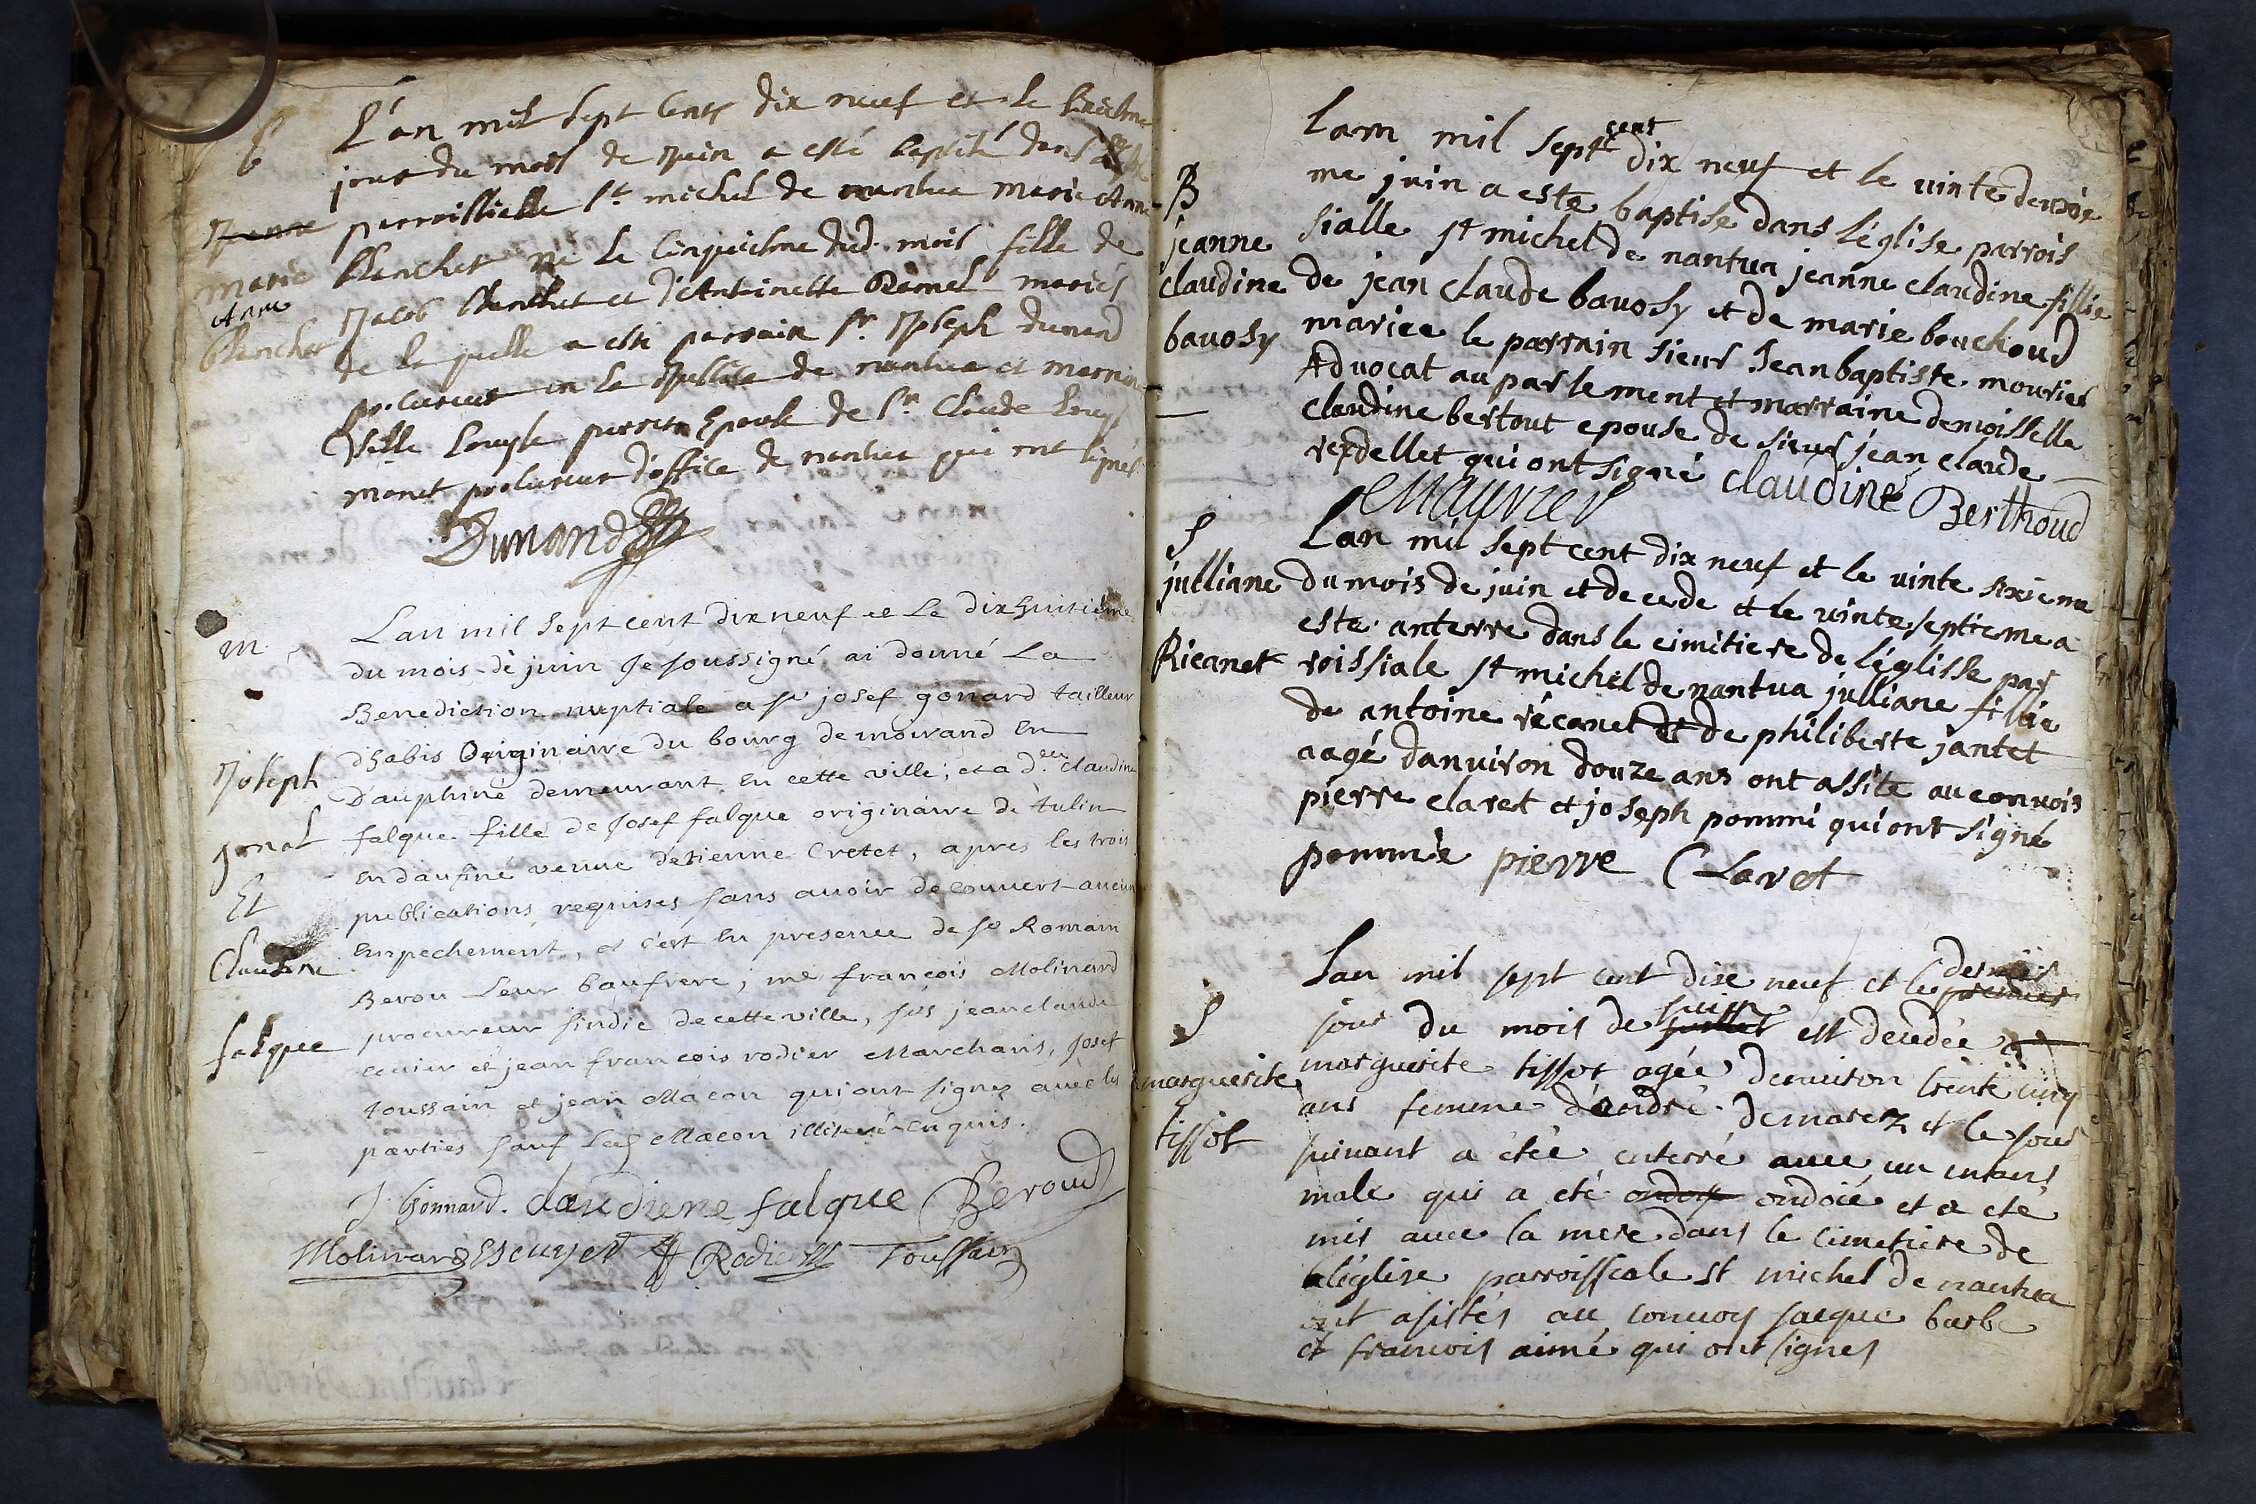 B
L'an mil sept cents dix neuf et le
jour du mois de Juin a esté baptisé dans
parroissielle st michel de nantua marie Anne
marie Anne blanchet
blanchet né le cinquiesme dud. mois fille de
Jacob blanchet et d'Antoinette Ramel mariés
de la quelle a esté parrain sr. Joseph dunand
procureur en la Justice de nantua et
perret Epouse de sr. Claude
monet procureur d'office de nantua qui ont signés
Dunand
m
Joseph
gonal
Et
Claudine
falque
Lan mil sept cent dix neuf et Le dixhuitième
du mois de juin Je soussigné ai donné La
Benediction nuptiale a sr josef gonard tailleur
d'habis Originaire du bourg de moirand En
Dauphiné demeurant En cette ville; et a d.elle Claudine
falque fille de Josef falque originaire de tulin
En daufiné veuve detienne Cretet, apres les trois
publications requises sans avoir decouvert aucun
Empechement, et c'est En presence de sr Romain
Berou Leur baufrere; me françois Molinard
procureur sindic decetteville, srs jeanclaude
et jean francois rodier Marchans, Josef
toussain et jean Macon qui ont signez avec les
parties sauf Led Macon illiteré Enquis.
J. Gonnard. claudiene falque Beroud
Molinard Rodier toussain
B
jeanne
claudine
bavosy
Lam mil sept cent dix neuf et le vinte deusie
me juin a este baptise dans léglise parrois
sialle st michel de nantua jeanne claudine fillie
de jean claude bavosy et de marie bouchoud
mariee le parrain sieur Jean baptiste mourier
Advocat au parlement et marraine demoisselle
claudine bertout epouse de sieur jean claude
verdellet qui ont signé claudine Berthoud
Mauvrier
S
julliane
Ricanet
Lan mil sept cent dix neuf et le vinte sixieme
du mois de juin et decede et le vinte septieme a
este anterre dans le cimitiere de léglisse par
roissiale st michel de nantua julliane fillie
de antoine récanet et de philiberte jantet
aagé danuiron douze ans ont assite au convois
pierre claret et joseph pommi qui ont signé
pommée pierre Claret
S
marguerite
tissot
Lan mil sept cent dise neuf et le premier dernier
jour du mois de juillet juin est decedée
marguerite tissot agée denuiron trente cinq
ans femme d'andré demarez et le jour
suivant a étée enterré avec un enfans
male qui a eté ondoié et a eté
mis avec la mere dans le cimetiere de
léglise parroissiale st michel de nantua
ont asistés au convoy jacque barbe
et francois aimé qui ont signes